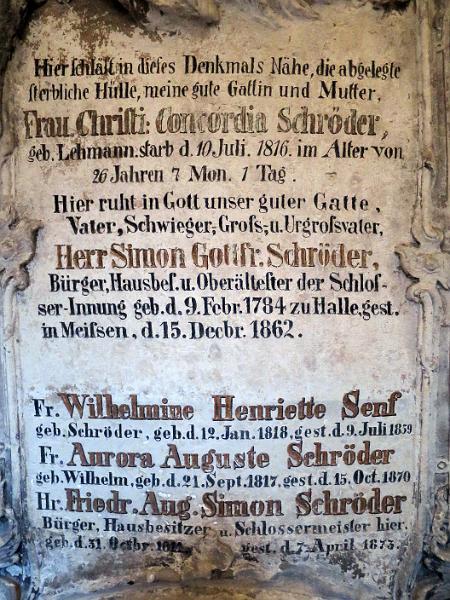 Hier schläft in dieses Denkmals Nähe, die abgelegte
sterbliche Hülle, meine gute Gattin und Mutter,
Frau Christi: Concordia Schröder,
geb. Lehmann. starb d. 10 Juli. 1816. im Alter von
26 Jahren 7 Mon. 1 Tag.
Hier ruht in Gott unser guter Gatte,
Vater, Schwieger-, Groſs-, u. Urgroſsvater,
Herr Simon Gottfr. Schröder,
Bürger, Hausbeſ. u. Oberältester der Schloſ-
ser-Innung geb. d. 9. Febr. 1784 zu Halle, gest.
in Meiſsen, d. 15. Decbr. 1862.
Fr. Wilhelmine Henriette Senf
geb. Schröder, geb. d. 12. Jan. 1818, gest. d. 9. Juli 1859
Fr. Aurora Auguste Schröder
geb. Wilhelm, geb. d. 21. Sept. 1817, gest. d. 15. Oct. 1870
Hr. Friedr. Aug. Simon Schröder
Bürger, Hausbesitzer u. Schlossermeister hier.
geb. d. 31. Octbr. gest. d. 7. April 1873.